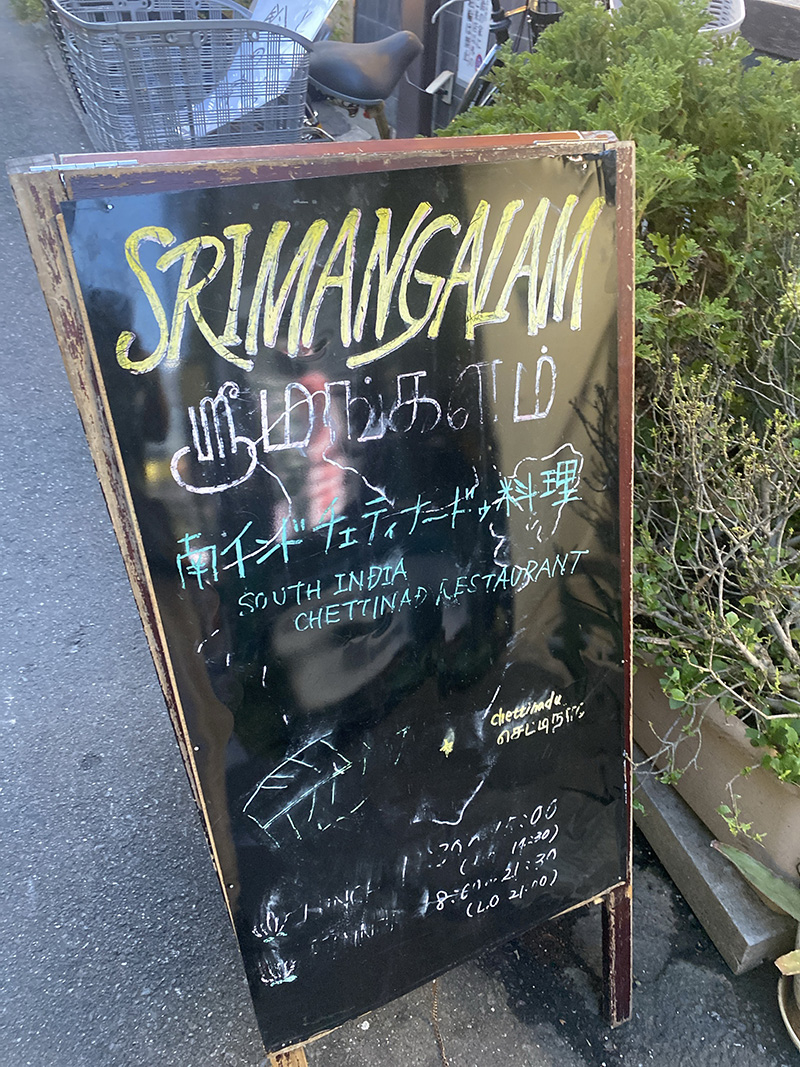 SRIMANGALAM
ஸ்ரீமங்களம்
南インドチェティナードゥ料理
SOUTH INDIA
CHETTINAD RESTAURANT
chettinadu
செட்டிநாடு
LUNCH 15:00
(L.O 14:30)
DINNER 18:00~21:30
(L.O 21:00)